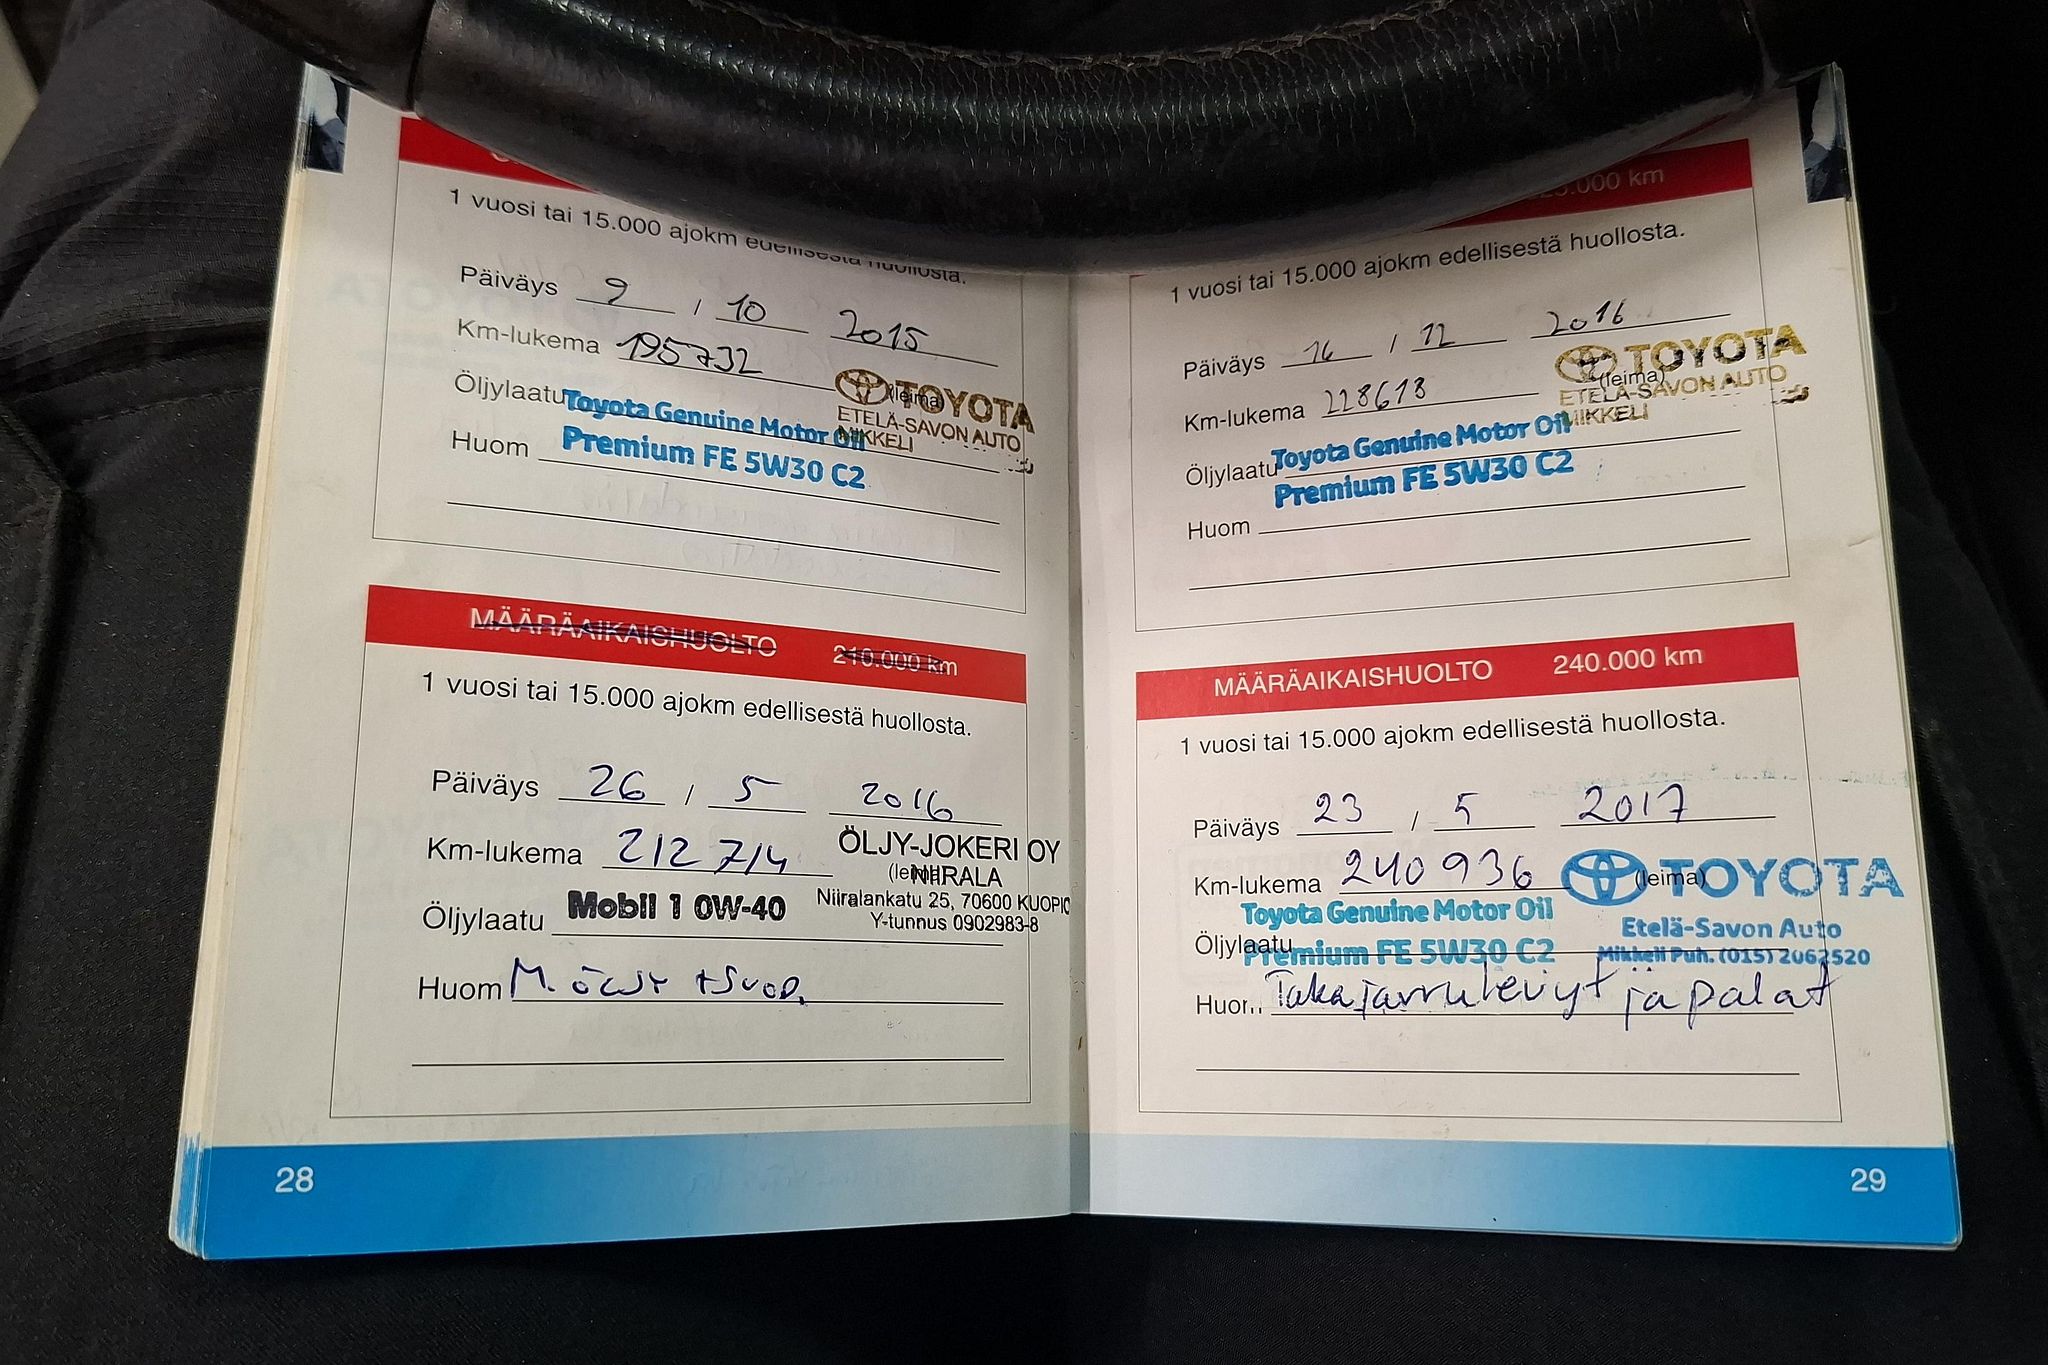 1 vuosi tai 15.000 ajokm edellisestä huollosta.
Päiväys 9 / 10 2015
Km-lukema 195732
(leima)
TOYOTA
ETELÄ-SAVON AUTO
MIKKELI
Öljylaatu Toyota Genuine Motor Oil
Premium FE 5W30 C2
Huom
MÄÄRÄAIKAISHUOLTO 210.000 km
1 vuosi tai 15.000 ajokm edellisestä huollosta.
Päiväys 26 / 5 2016
Km-lukema 212714
ÖLJY-JOKERI OY
(leima)
NIIRALA
Niiralankatu 25, 70600 KUOPIO
Y-tunnus 0902983-8
Öljylaatu Mobil 1 0W-40
Huom M. öljy + suod.
28
25.000 km
1 vuosi tai 15.000 ajokm edellisestä huollosta.
Päiväys / 12 2016
Km-lukema 228613
TOYOTA
(leima)
ETELÄ-SAVON AUTO
MIKKELI
Öljylaatu Toyota Genuine Motor Oil
Premium FE 5W30 C2
Huom
MÄÄRÄAIKAISHUOLTO 240.000 km
1 vuosi tai 15.000 ajokm edellisestä huollosta.
Päiväys 23 / 5 2017
Km-lukema 240936
TOYOTA
(leima)
Etelä-Savon Auto
Mikkeli Puh. (015) 2062520
Öljylaatu Toyota Genuine Motor Oil
Premium FE 5W30 C2
Huom Takajarrulevyt ja palat
29